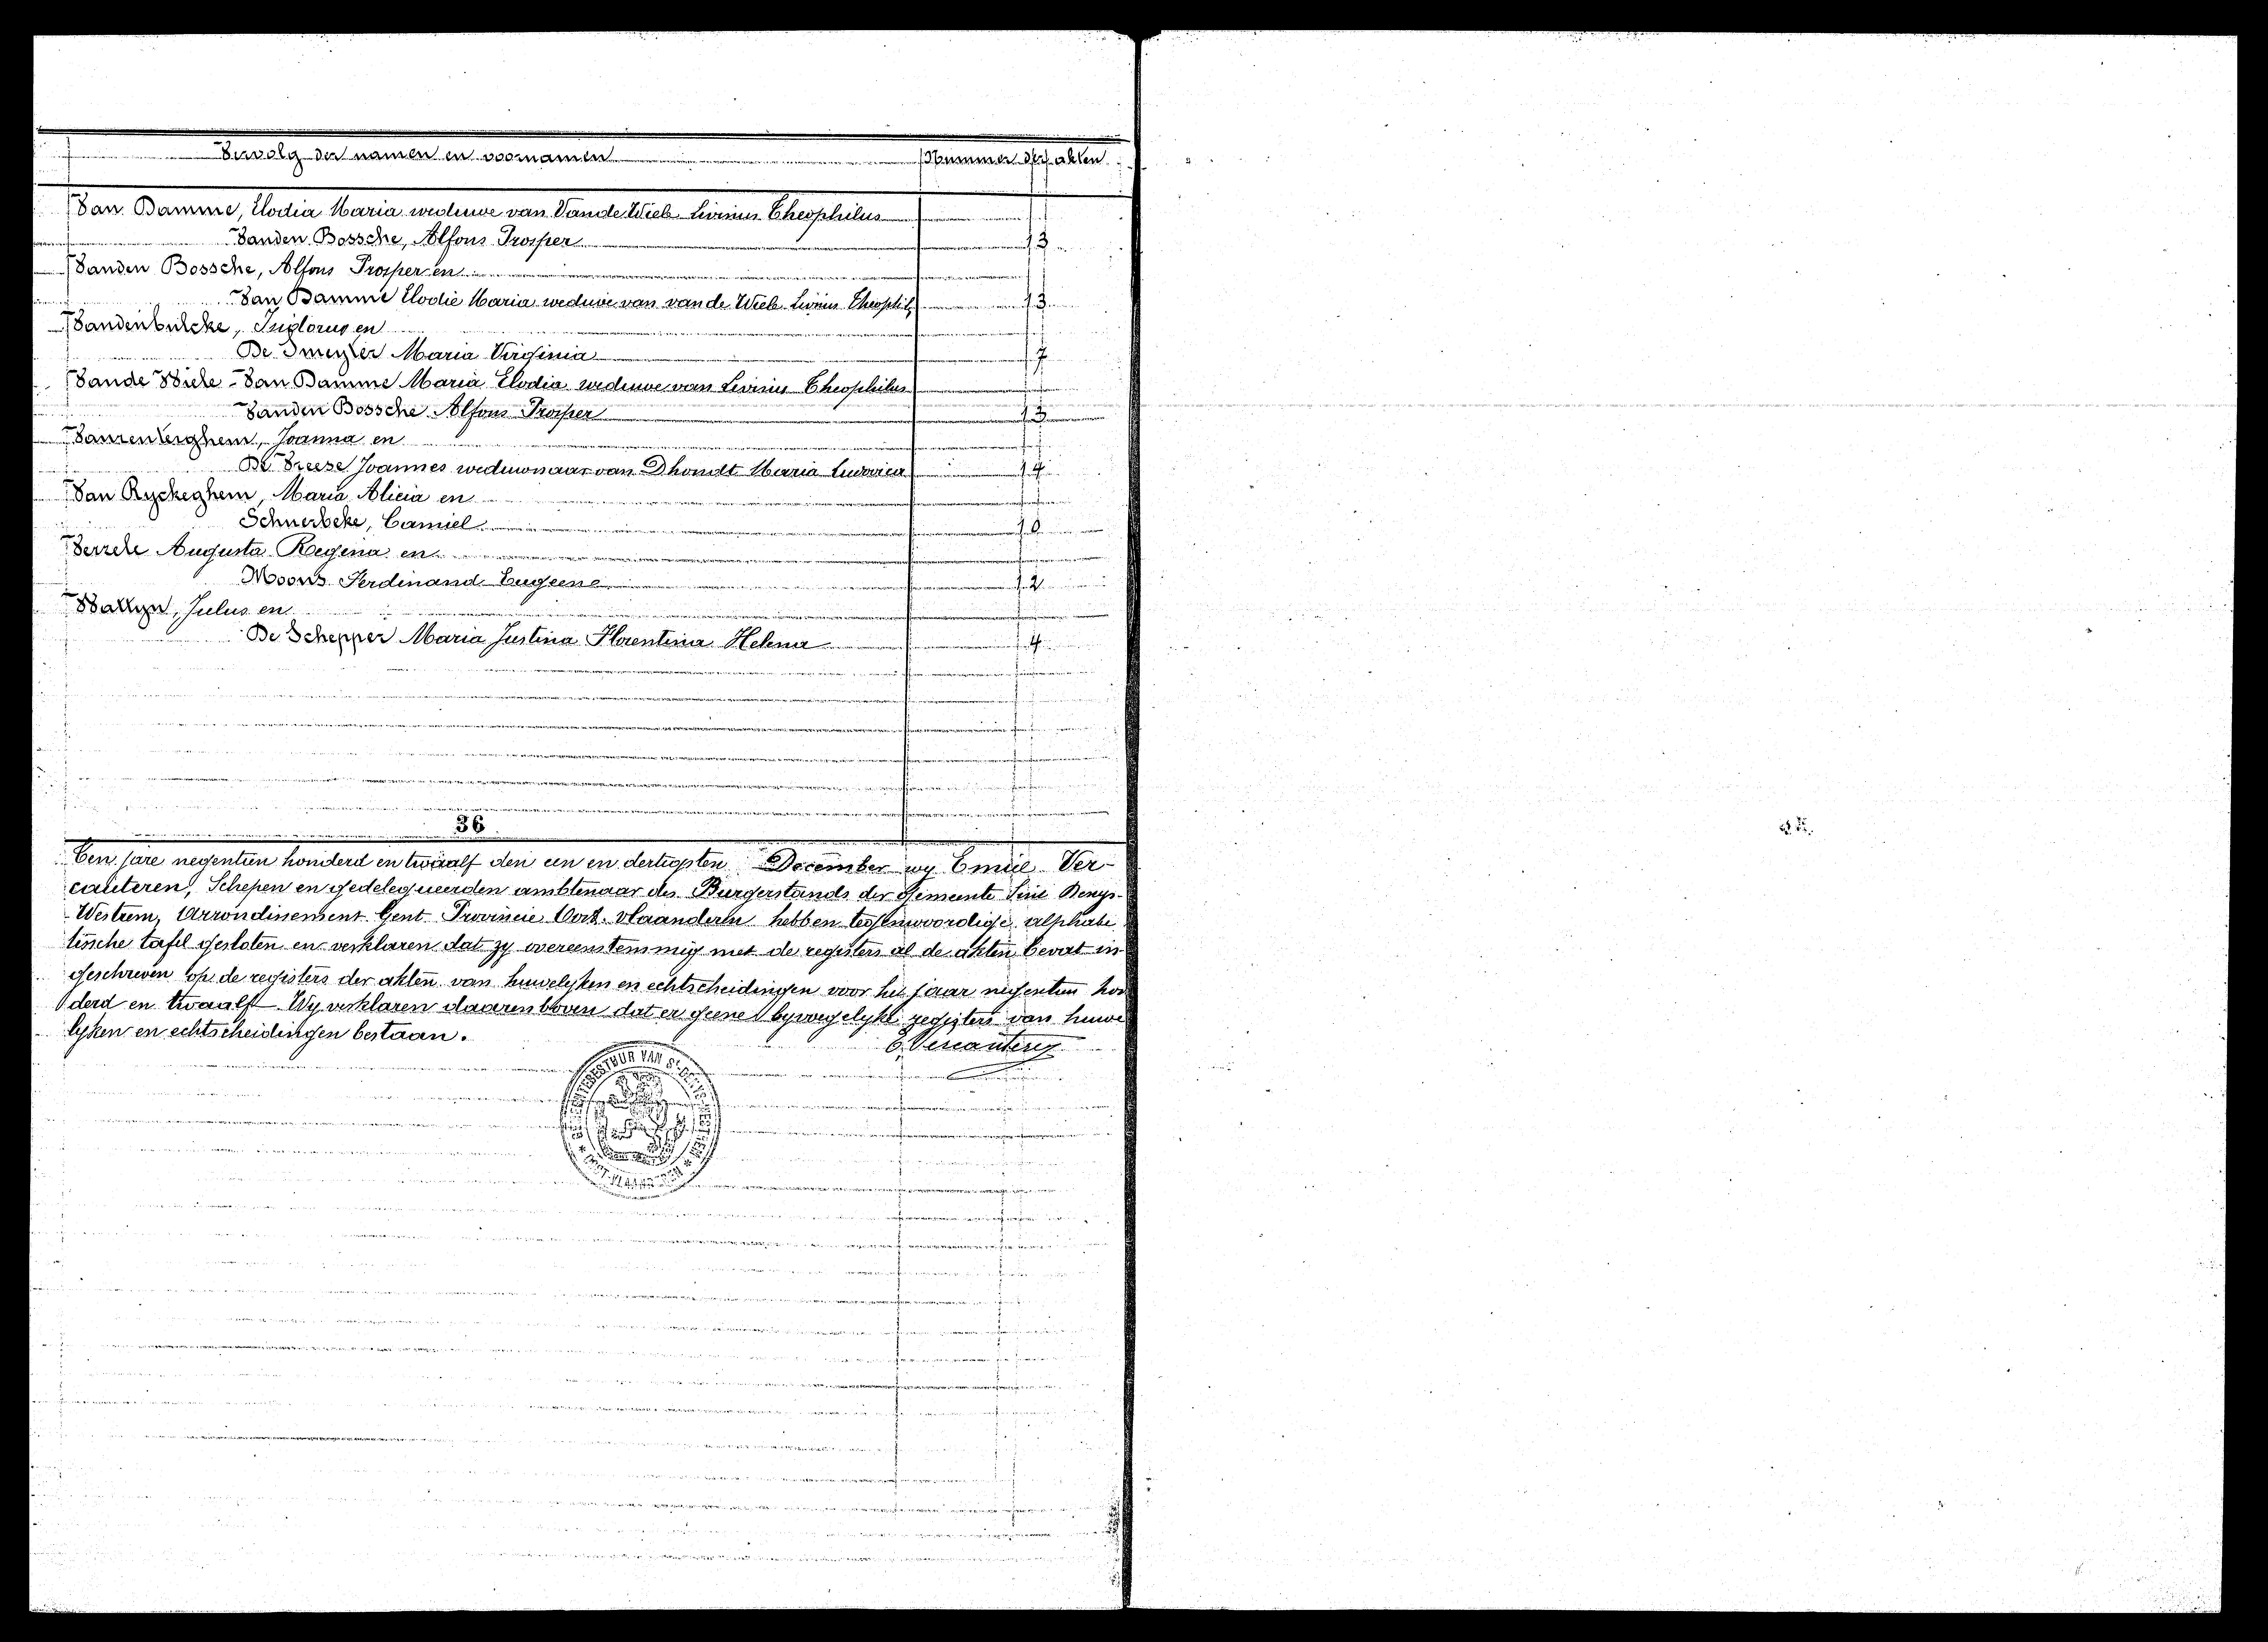 Vervolg der namen en voornamen Nummer der akten
Van Damme, Elodia Maria weduwe van Vande Wiele Livinus Theophilus
Vanden Bossche, Alfons Prosper 13
Vanden Bossche, Alfons Prosper en
Van Damme Elodie Maria weduwe van van de Wiele Livinus Theophil,
13
Vandenbulcke, en
De Smeyter Maria Virginia 7
Vande Wiele - Van Damme Maria Elodia weduwe van Livinus Theophilus
Vanden Bossche Alfons Prosper 13
Joanna en
De Vreese Joannes weduwnaar van Dhondt Maria Ludovica 14
Van Ryckeghem, Maria Alicia en
Schuerbeke, Camiel 10
Verzele Augusta Regina en
Moons Ferdinand Eugeene 12
Wallyn, Julus en
De Schepper Maria Justina Florentina Helena 4
36
Ten jare negentien honderd en twaalf den een en dertigsten December wy Emiel Ver-
cauteren, Schepen en gedelegueerden ambtenaar des Burgerstands der gemeente Sint Denys-
Westrem, Arrondissement Gent Provincie Oost-vlaanderen hebben tegenwoordige alphabe
tische tafel gesloten en verklaren dat zy overeenstemmig met de registers al de akten bevat in
geschreven op de registers der akten van huwelyken en echtscheidingen voor het jaar negentien hon
derd en twaalf. Wy verklaren daarenboven dat er geene byvoegelyke registers van huwe
lyken en echtscheidingen bestaan.
E. Vercauteren
GEMEENTEBESTUUR VAN ST DENYS-WESTREM
* OOST-VLAANDEREN *